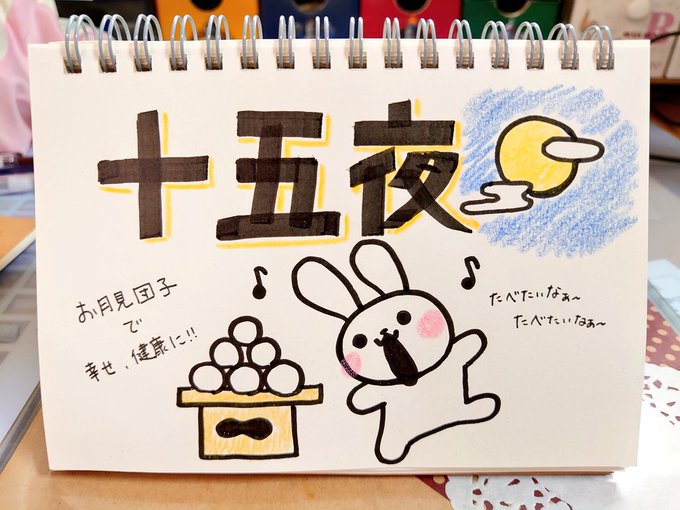 十五夜
お月見団子
で
幸せ、健康に!!
たべたいなぁ〜
たべたいなぁ〜